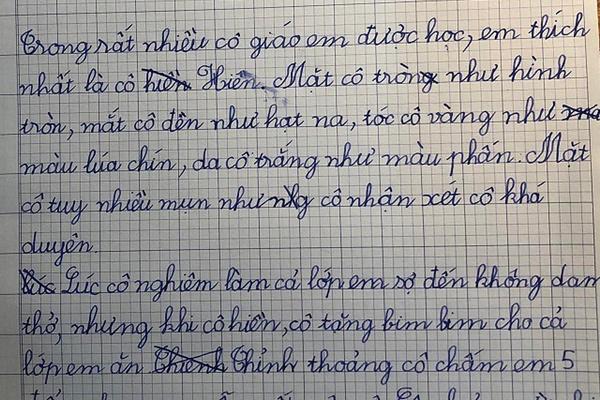 Trong rất nhiều cô giáo em được học, em thích
nhất là cô hiền Hiền. Mặt cô tròng như hình
tròn, mắt cô đên như hạt na, tóc cô vàng như
màu lúa chín, da cô trắng như màu phấn. Mặt
cô tuy nhiều mụn như nhg cô nhận xét cô khá
duyên.
Lúc Lúc cô nghiêm làm cả lớp em sợ đến không dam
thở, nhưng khi cô hiền, cô tặng bim bim cho cả
lớp em ăn Thỉnh thoảng cô chấm em 5